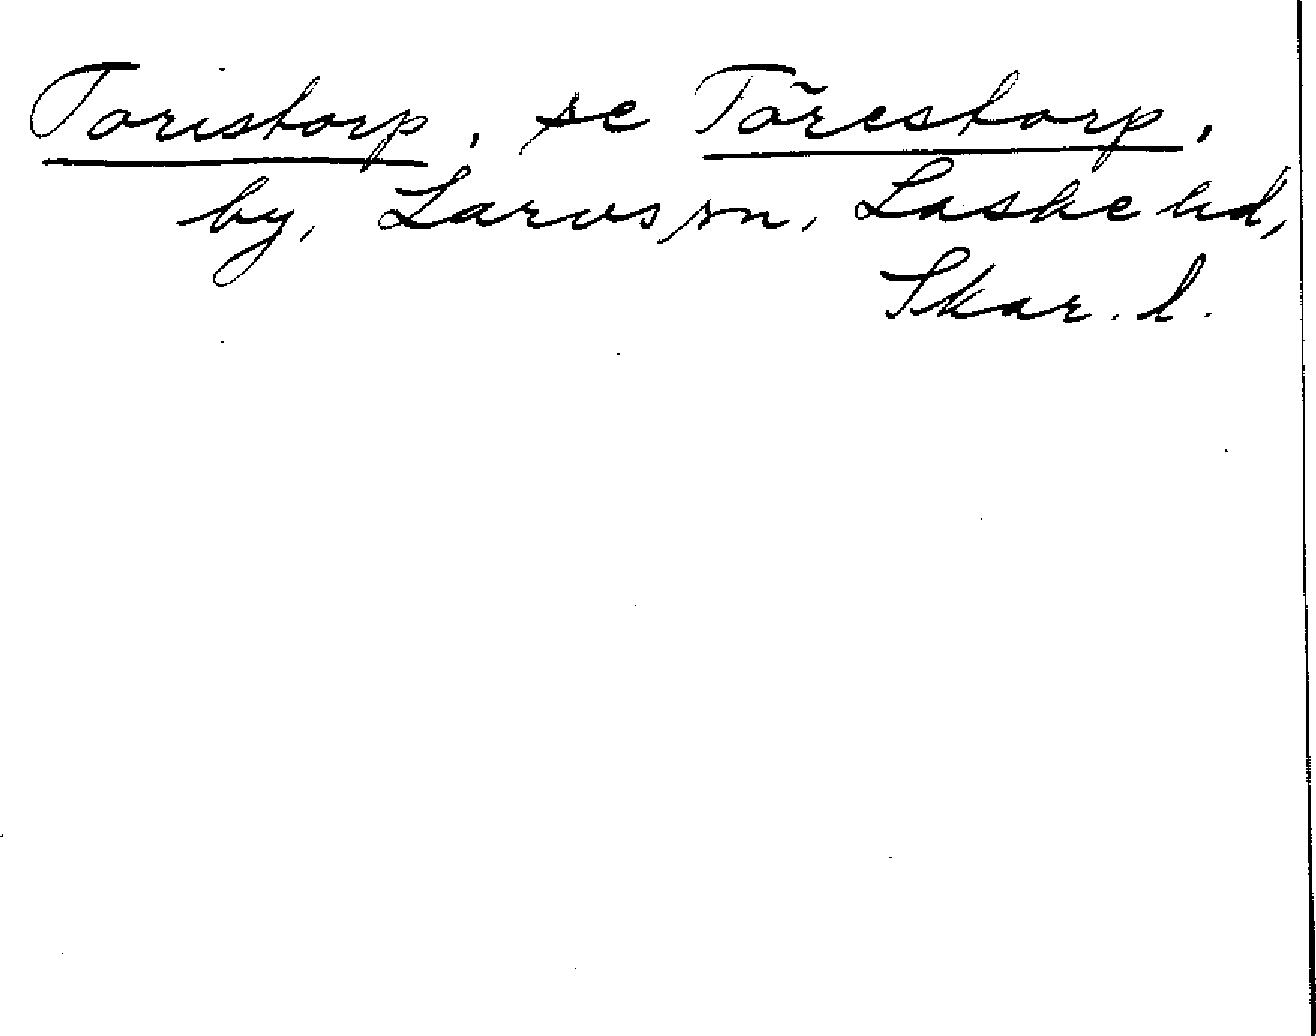 Toristorp, se Törestorp,
by, Larvs sn, Laske hd,
Skar. l.